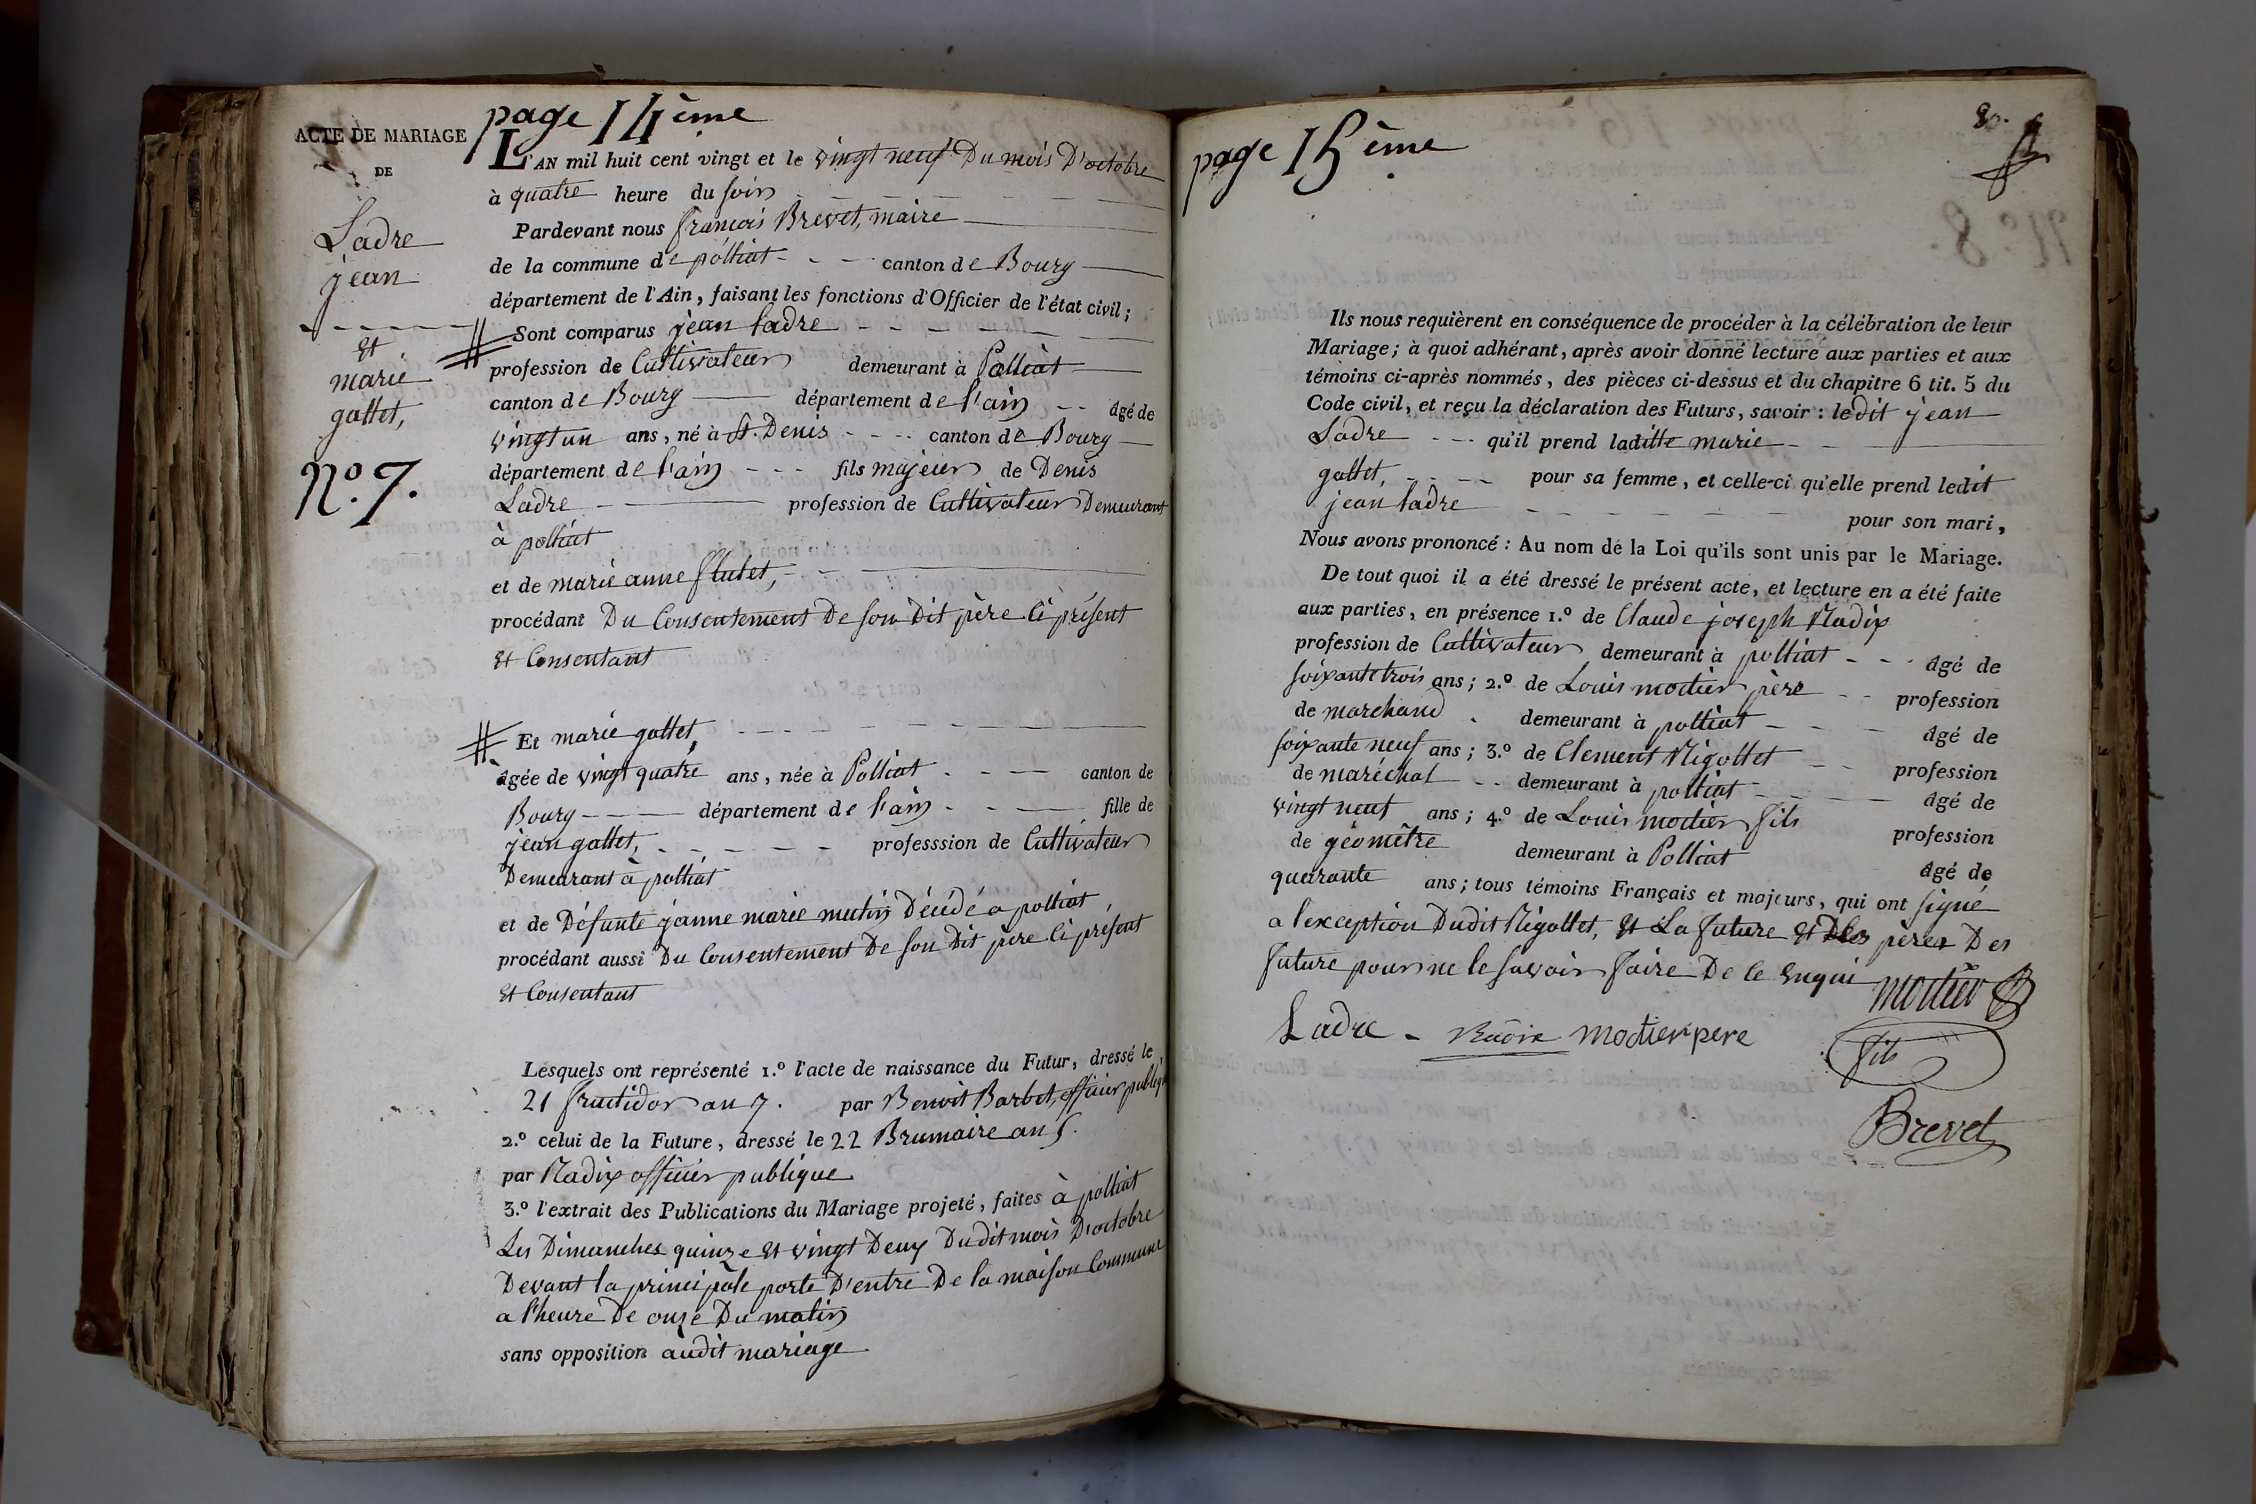 page 14ème
ACTE DE MARIAGE
DE
Ladre
jean
Et
marie
gallet,
N.o 7.
L'AN mil huit cent vingt et le vingt neuf Du mois D'octobre
à quatre heure du soir
Pardevant nous françois Brevet, maire
de la commune de polliat canton de Bourg
département de l'Ain, faisant les fonctions d'Officier de l'état civil ;
Sont comparus jean ladre
profession de Cultivateur demeurant à Polliat
canton de Bourg département de l'ain âgé de
vingt un ans, né à St. Denis canton de Bourg
département de l'ain fils majeur de Denis
Ladre profession de Cultivateur Demeurant
à polliat
et de marie anne flutet,
procédant Du Consentement De son Dit père Ci présent
Et Consentant
Et marie gallet,
âgée de vingt quatre ans, née à Polliat canton de
Bourg département de l'ain fille de
jean gallet, professsion de Cultivateur
Demeurant à polliat
et de Défunte jeanne marie mutin Décédé a polliat
procédant aussi Du Consentement De son Dit père Ci présent
Et Consentant
Lesquels ont représenté 1.º l'acte de naissance du Futur, dressé le
21 fructidor an 7. par Benoit Barbet, officier publique
2.º celui de la Future, dressé le 22 Brumaire an 5.
par Nadix officier publique
3.º l'extrait des Publications du Mariage projeté, faites à polliat
Les Dimanches quinze Et vingt Deux Dudit mois D'octobre
Devant la principale porte D'entre De la maison Commune
a l'heure De onze Du matin
sans opposition audit mariage
page 15ème
N.o 8.
Ils nous requièrent en conséquence de procéder à la célébration de leur
Mariage ; à quoi adhérant, après avoir donné lecture aux parties et aux
témoins ci-après nommés, des pièces ci-dessus et du chapitre 6 tit. 5 du
Code civil, et reçu la déclaration des Futurs, savoir : ledit jean
Ladre qu'il prend laditte marie
gallet, pour sa femme, et celle-ci qu'elle prend ledit
jean ladre pour son mari,
Nous avons prononcé : Au nom de la Loi qu'ils sont unis par le Mariage.
De tout quoi il a été dressé le présent acte, et lecture en a été faite
aux parties, en présence 1.º de Claude joseph Nadix
profession de Cultivateur demeurant à polliat âgé de
soixante trois ans ; 2.º de Louis modier père profession
de marchand demeurant à polliat âgé de
soixante neuf ans ; 3.º de Clement Nigollet profession
de maréchal demeurant à polliat âgé de
vingt neuf ans ; 4.º de Louis modier fils profession
de géomêtre demeurant à Polliat âgé de
quarante ans ; tous témoins Français et majeurs, qui ont signé
a l'exception Dudit Nigollet, Et La future Et Des pères Des
future pour ne le savoir faire De Ce Enquis
Ladre Nadix modier pere modier
fils
Brevet